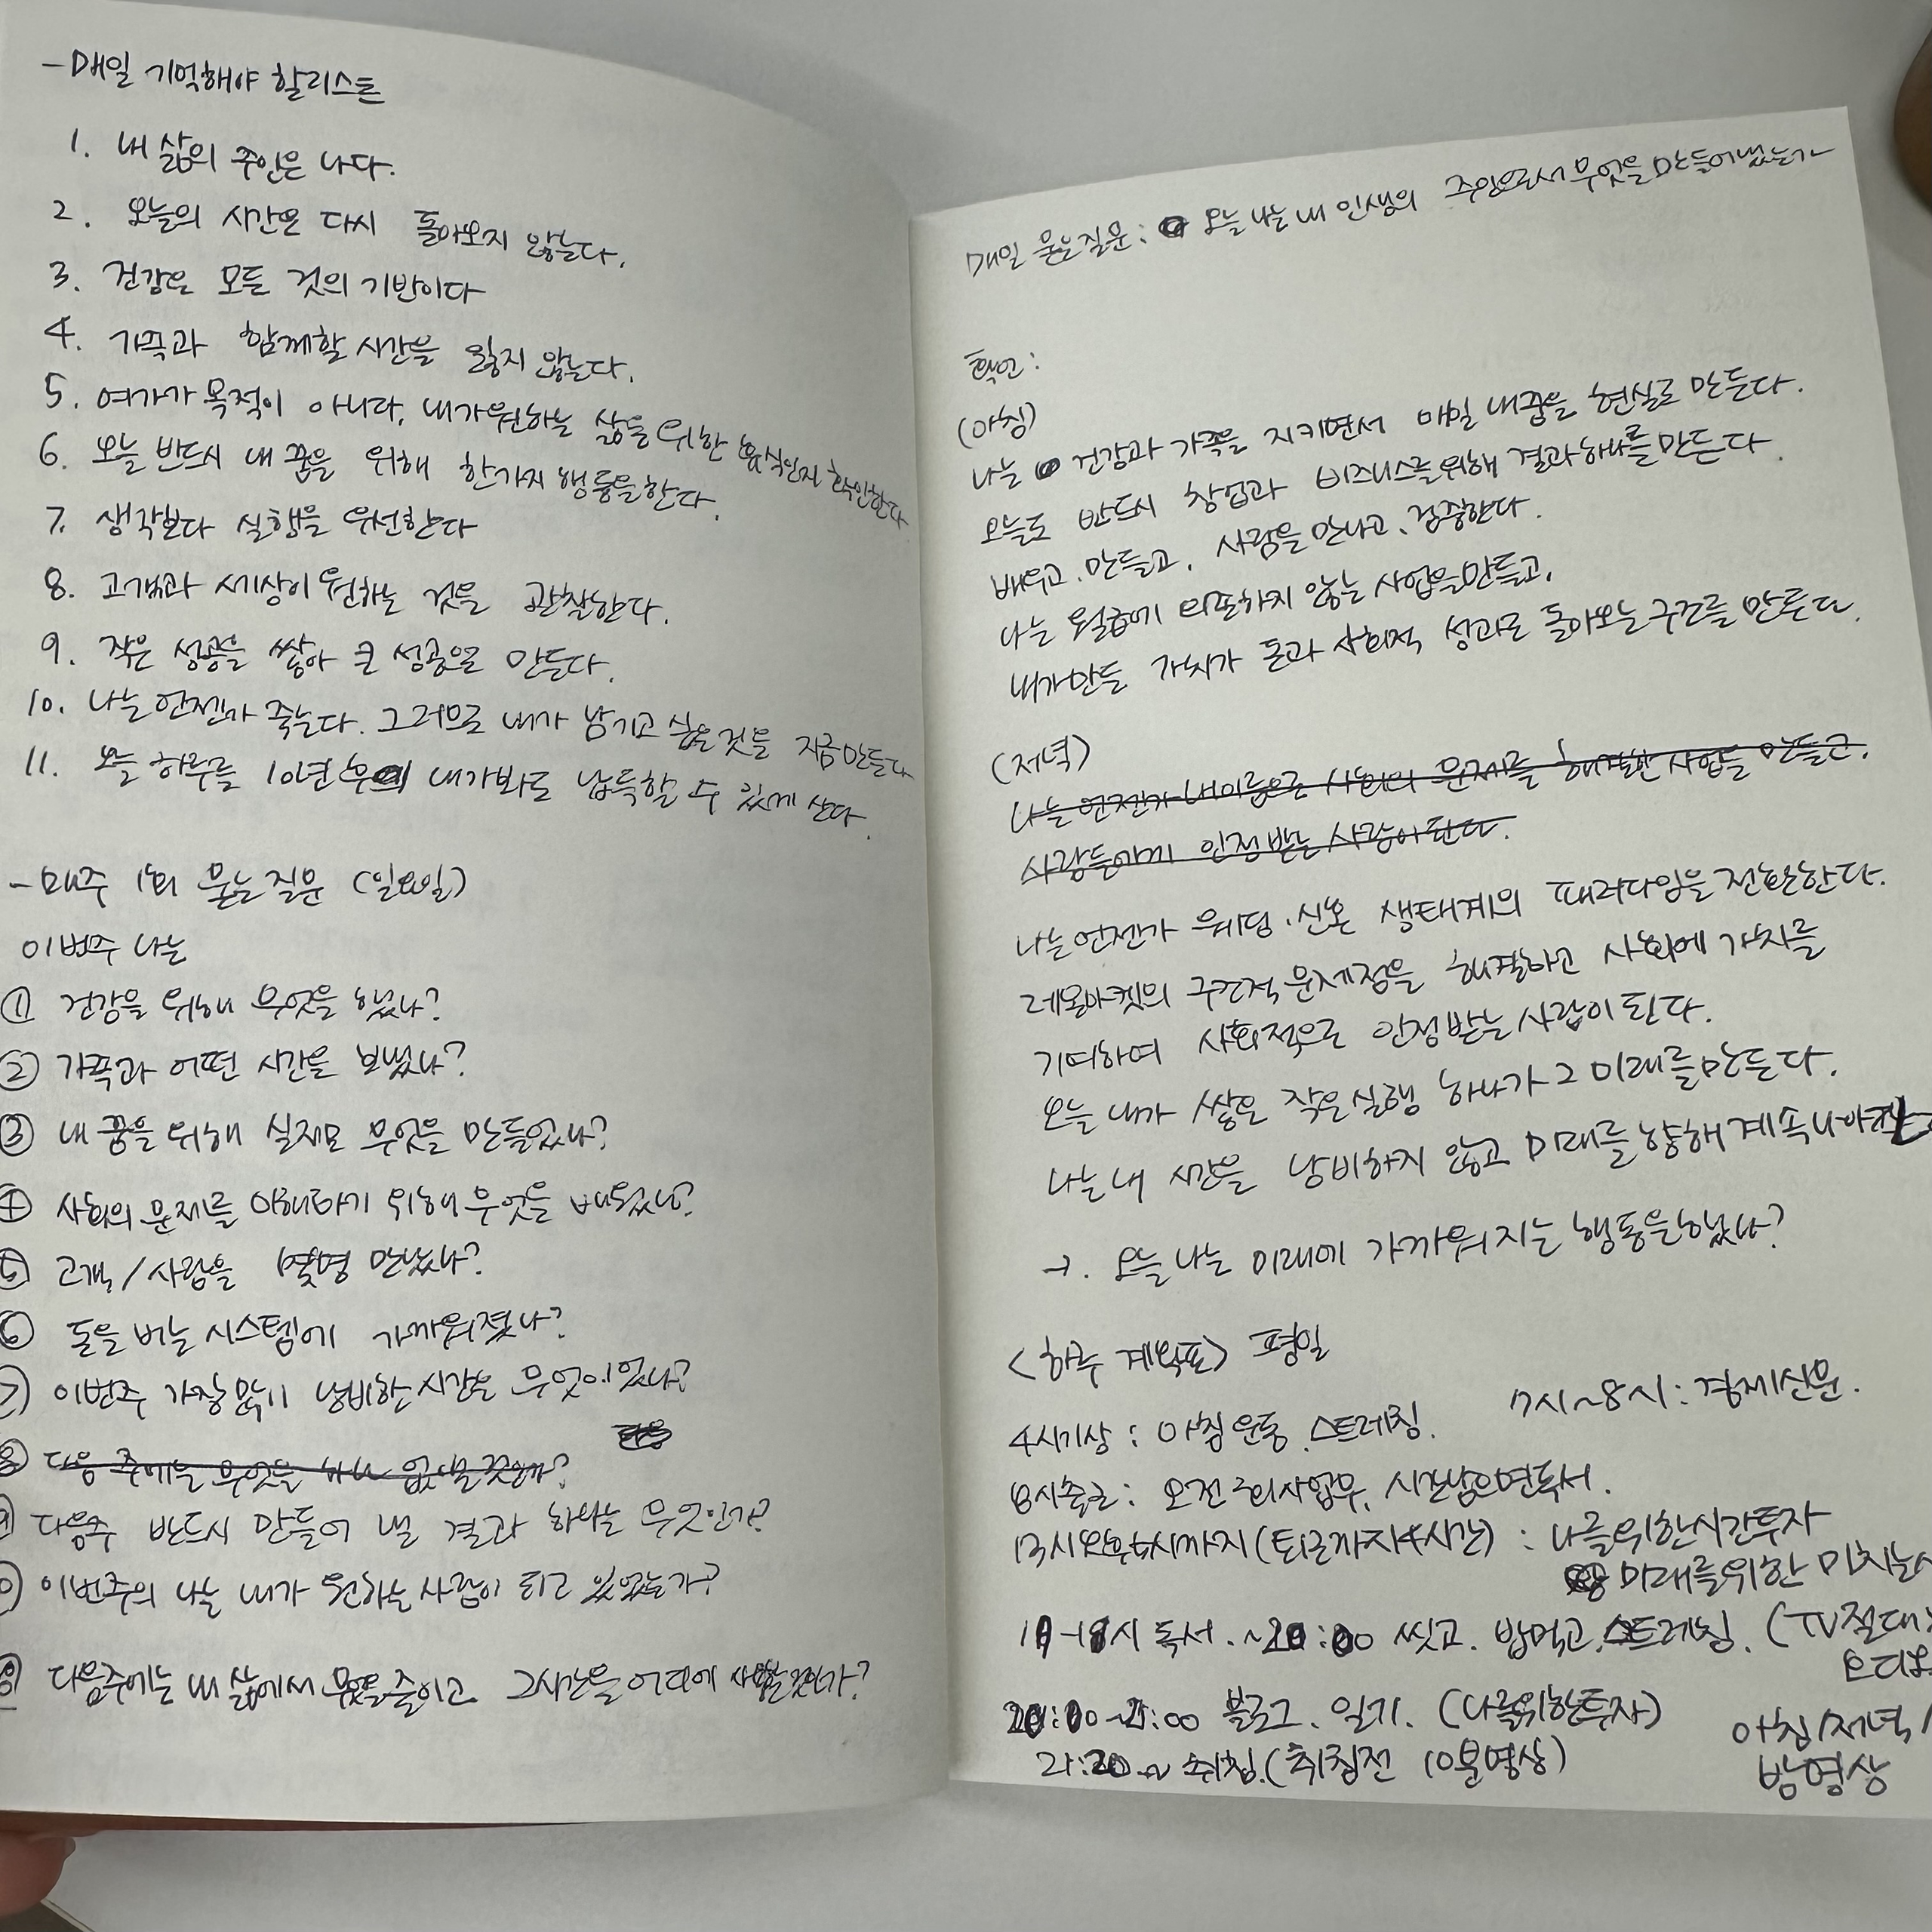 -매일 기억해야 할리스트
1. 내 삶의 주인은 나다.
2. 오늘의 시간은 다시 돌아오지 않는다.
3. 건강은 모든 것의 기반이다
4. 가족과 함께할 시간을 잃지 않는다.
5. 여가가 목적이 아니다, 내가원하는 삶을 위한 휴식인지 확인한다
6. 오늘 반드시 내 꿈을 위해 한가지 행동을한다.
7. 생각보다 실행을 우선한다
8. 고객과 세상이 원하는 것을 관찰한다.
9. 작은 성공을 쌓아 큰 성공을 만든다.
10. 나는 언젠가 죽는다. 그러므로 내가 남기고 싶은것을 지금만든다
11. 오늘 하루를 10년후의 내가봐도 납득할 수 있게 산다.
-매주 1회 묻는질문 (일요일)
이번주 나는
① 건강을 위해 무엇을 했나?
② 가족과 어떤 시간을 보냈나?
③ 내 꿈을 위해 실제로 무엇을 만들었나?
④ 사회의 문제를 이해하기 위해 무엇을 배웠나?
⑤ 고객/사람을 몇명 만났나?
⑥ 돈을 버는 시스템에 가까워졌나?
⑦ 이번주 가장 많이 낭비한 시간은 무엇이었나?
⑧ 다음 주에는 무엇을 없앨것인가?
⑨ 다음주 반드시 만들어 낼 결과 하나는 무엇인가?
⑩ 이번주의 나는 내가 원하는 사람이 되고 있었는가?
다음주에는 내 삶에서 무엇을줄이고 그시간을 어디에 사용할것인가?
매일 묻는질문: 오늘 나는 내 인생의 주인으로서 무엇을 만들어냈는가
확언:
(아침)
나는 건강과 가족을 지키면서 매일 내꿈을 현실로 만든다.
오늘도 반드시 창업과 비즈니스를위해 결과하나를만든다.
배우고, 만들고, 사람을 만나고, 검증한다.
나는 월급에 의존하지 않는 사업을만들고,
내가만든 가치가 돈과 사회적 성과로 돌아오는 구조를 만든다.
(저녁)
나는 언젠가 내이름으로 사회의 문제를 해결한 사업을 만들고.
사람들에게 인정 받는 사람이 된다.
나는 언젠가 웨딩·신혼 생태계의 패러다임을 전환한다.
레몬마켓의 구조적 문제점을 해결하고 사회에 가치를
기여하여 사회적으로 인정받는 사람이 된다.
오늘 내가 쌓은 작은실행 하나가 그 미래를만든다.
나는 내 시간을 낭비하지 않고 미래를 향해 계속 나아간다
→. 오늘 나는 미래에 가까워지는 행동을했나?
<하루 계획표> 평일
4시기상 : 아침운동 스트레칭. 7시~8시 : 경제신문.
8시출근: 오전 회사업무, 시간남으면독서.
13시 까지(퇴근까지4시간) : 나를위한시간투자
미래를위한 미치는
시 독서. 씻고. 밥먹고. 스트레칭. (TV절대
블로그. 일기. (나를위한투자)
아침/저녁/
21:20~ 취침.(취침전 10분명상)
밤명상